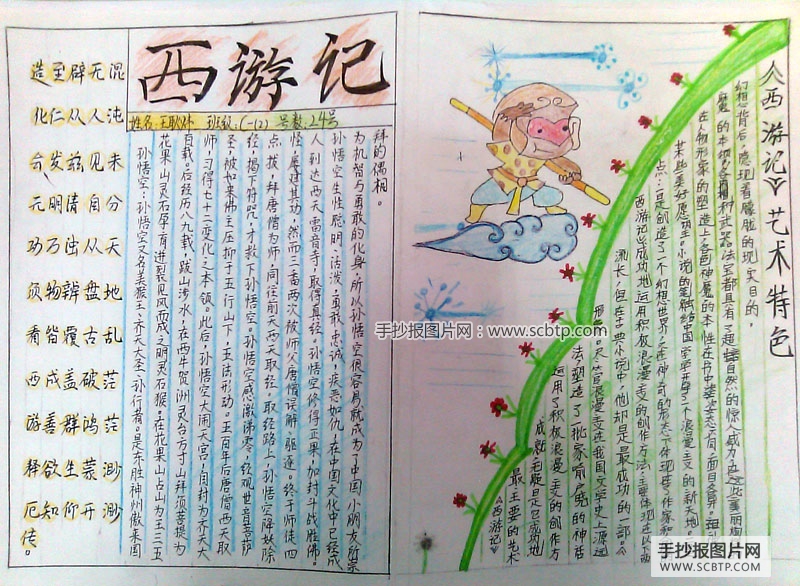 西游记
姓名:王耿林 班级:(-12) 号数:24号
混沌未分天地乱茫茫渺渺
无人见自从盘古破鸿蒙开
辟从兹清浊辨覆盖群生仰
至仁发明万物皆成善欲知
造化会元功须看西游释厄传。
孙悟空：孙悟空又名美猴王、齐天大圣、孙行者。是东胜神州傲来国
花果山灵石孕育迸裂见风而成之明灵石猴。在花果山占山为王三五
百载。后经历八九载，跋山涉水，在西牛贺洲灵台方寸山拜须菩提为
师，习得七十二变化之本领。此后，孙悟空大闹天宫，自封为齐天大
圣，被如来佛主压抑于五行山下，无法形动。五百年后唐僧西天取
经，揭下符咒，才救下孙悟空。孙悟空感激涕零，经观世音菩萨
点拔，拜唐僧为师，同往前天西天取经。取经路上，孙悟空降妖除
怪，屡建其功，然而三番两次被师父唐僧误解、驱逐。终于师徒四
人到达西天雷音寺，取得真经。孙悟空修得正果，加封斗战胜佛。
孙悟空生性聪明、活泼、勇敢、忠诚、疾恶如仇，在中国文化中已经成
为机智与勇敢的化身，所以孙悟空很容易就成为了中国小朋友所崇
拜的偶相。
《西游记》艺术特色
《西游记》
最主要的艺术
成就，是它成功地
运用了积极浪漫主义的创作方
法塑造了一批家喻户晓的神话
形象。尽管浪漫主义在我国文学史上源远
流长，但在古典小说中，他却是最成功的一部。《
西游记》成功地运用积极浪漫主义的创作方法，主要体现在以下两
点：一是创造了一个幻想世界，在神奇的形态下体现了作家和
艺术些美好愿望。小说的笔触给中国文学开辟了一个浪漫主义的新天地。
在人物形象的塑造上，各色神魔的本性在书中姿态各有，面目各异。
魔的本领，各种武器法宝都具有了超自然的惊人威力，在此美丽
幻想背后，隐现着朦胧的现实目的。
手抄报图片网：www.scbtp.com
手抄报图片网
WWW.SCBTP.COM